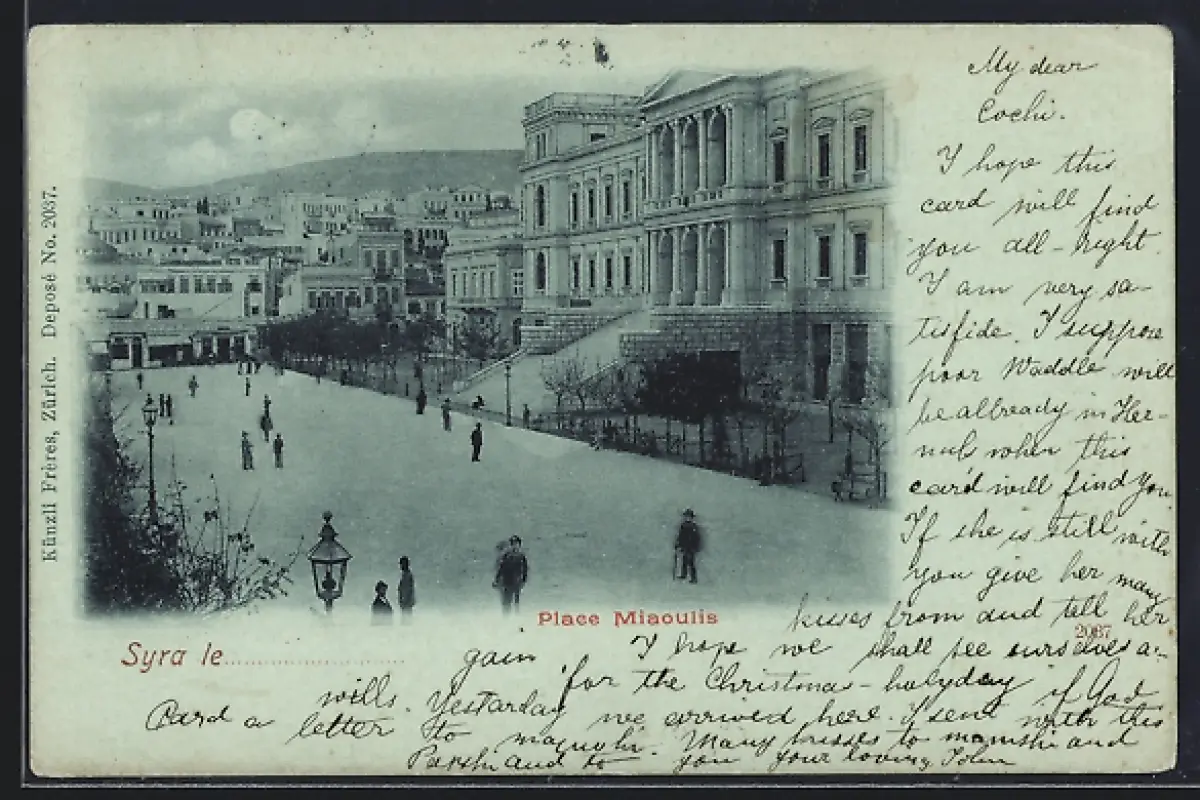 Künzli Frères, Zürich. Deposé No. 2037.
My dear
Cochi.
I hope this
card will find
you all-right.
I am very sa-
tisfide. I suppose
poor Waddle will
be allready in Her-
when this
card will find you
If she is still with
you give her many
kisses from and tell her
2037
Place Miaoulis
Syra le
I hope we shall see ourselves a-
gain for the Christmas-holyday if God
wills. Yesterday we arrived here. I sent with this
Card a letter to Many kisses to and
and to you your loving John